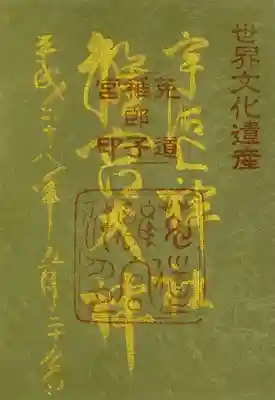 世界文化遺産
宇治上神社
菟道
稚郎子
宮印
離宮大神
平成二十八年五月二十日